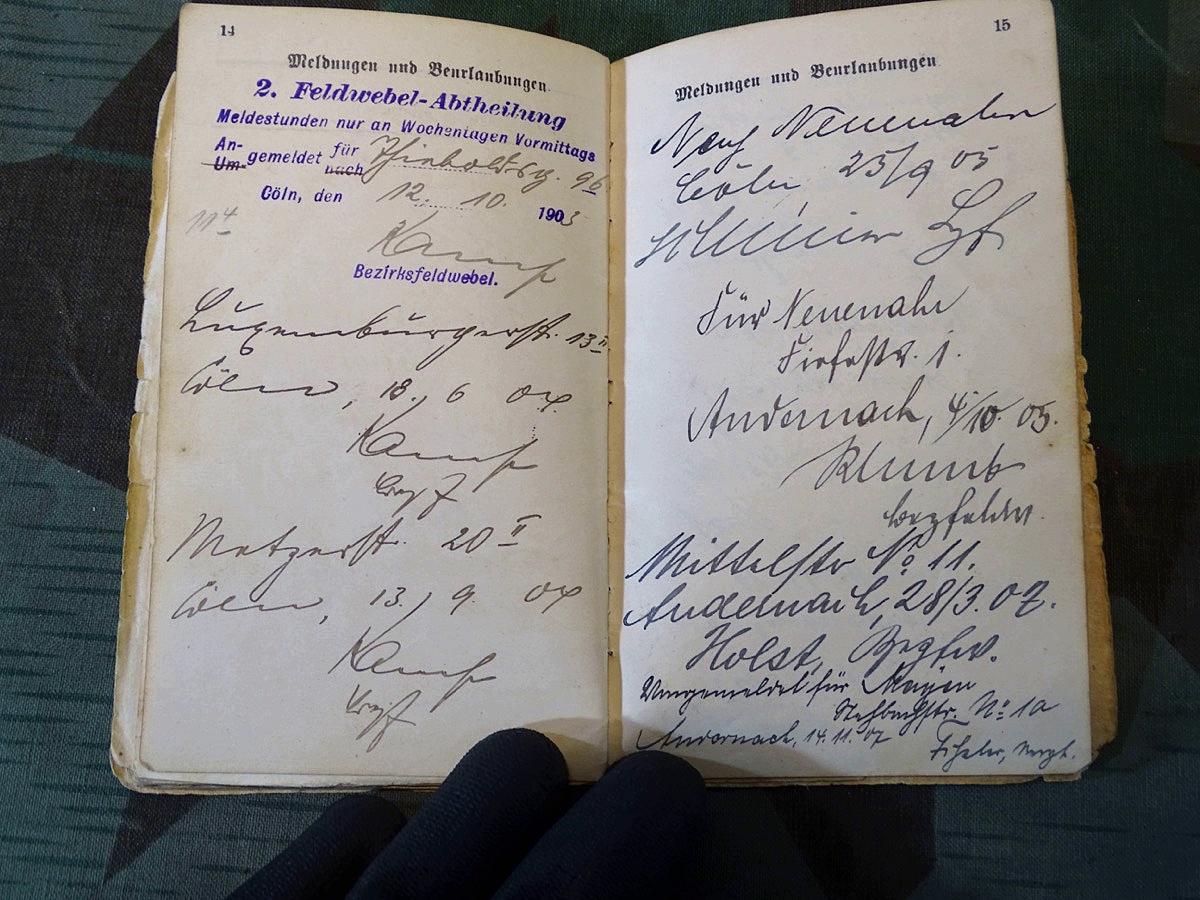 14
Meldungen und Beurlaubungen.
2. Feldwebel-Abtheilung
Meldestunden nur an Wochentagen Vormittags
An-
Um-gemeldet für
nach Thieboldsg. 96
Cöln, den 12. 10. 1903
Kamp
Bezirksfeldwebel.
Luxemburgerst. 13 II
Cöln, 18. 6 04
Kamp
Bezf
Metzerst. 20 II
Cöln, 13. 9. 04
Kamp
Bezf
15
Meldungen und Beurlaubungen
Nach Neuenahr
Cöln 25/9 05
Bzf
Für Neuenahr
1.
Andernach, 4/10. 05.
Klumb
Bezfeldw.
Mittelstr No 11.
Andernach, 28/3. 07.
Holst, Bezfw.
für Mayen
Stehbachstr. No 1a
Andernach, 14. 11. 07